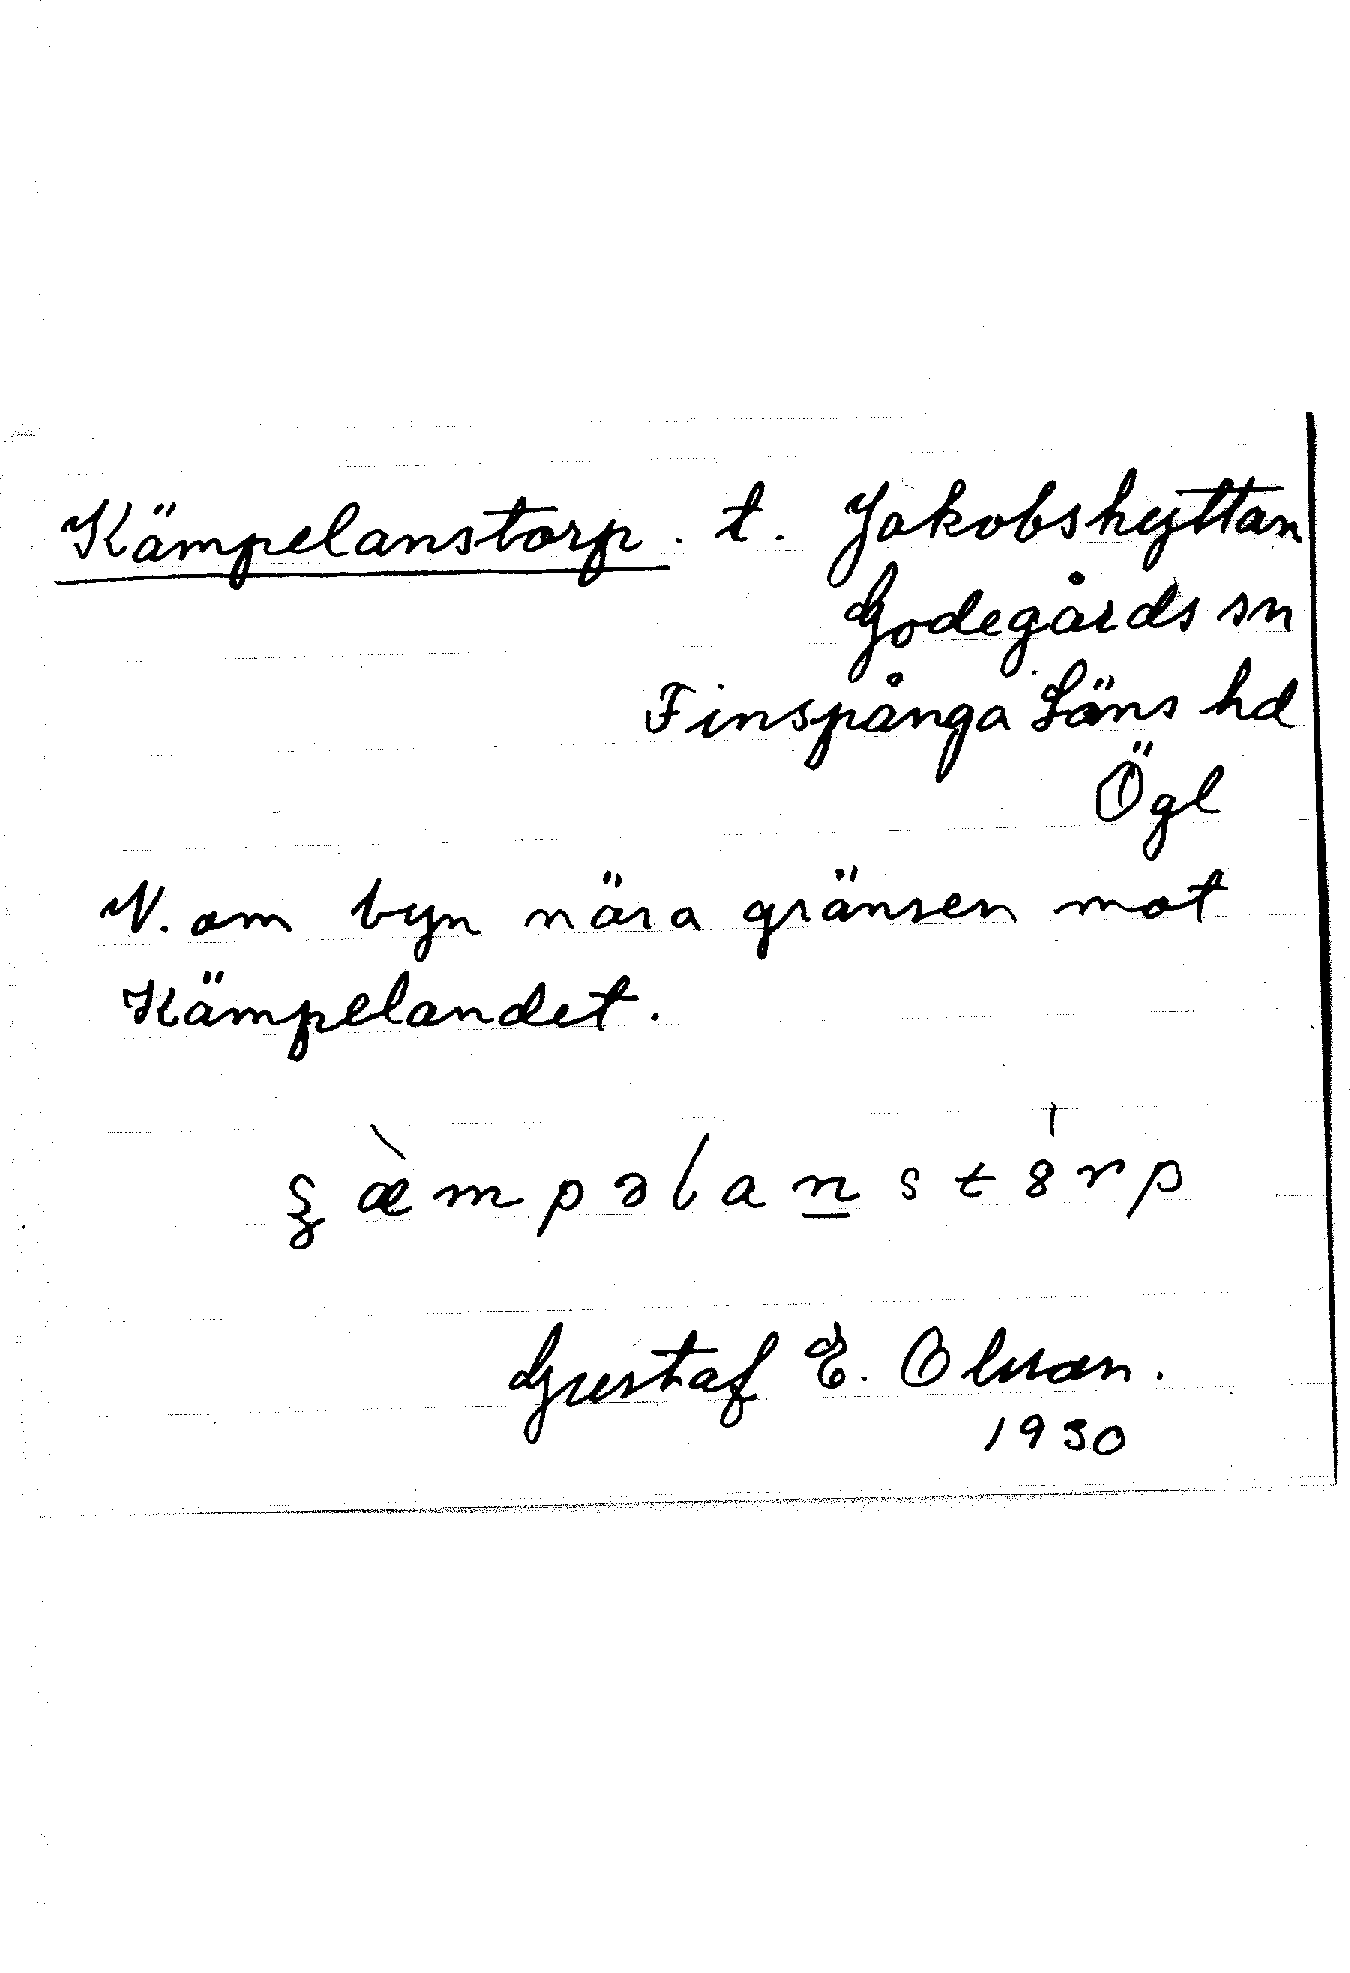 Kämpelanstorp. t. Jakobshyttan
Godegårds sn
Finspånga Läns hd
Ögl
N. om byn nära gränsen mot
Kämpelandet.
ʂæ̀mpəlans̠tȯrp
Gustaf E. Olsson.
1930